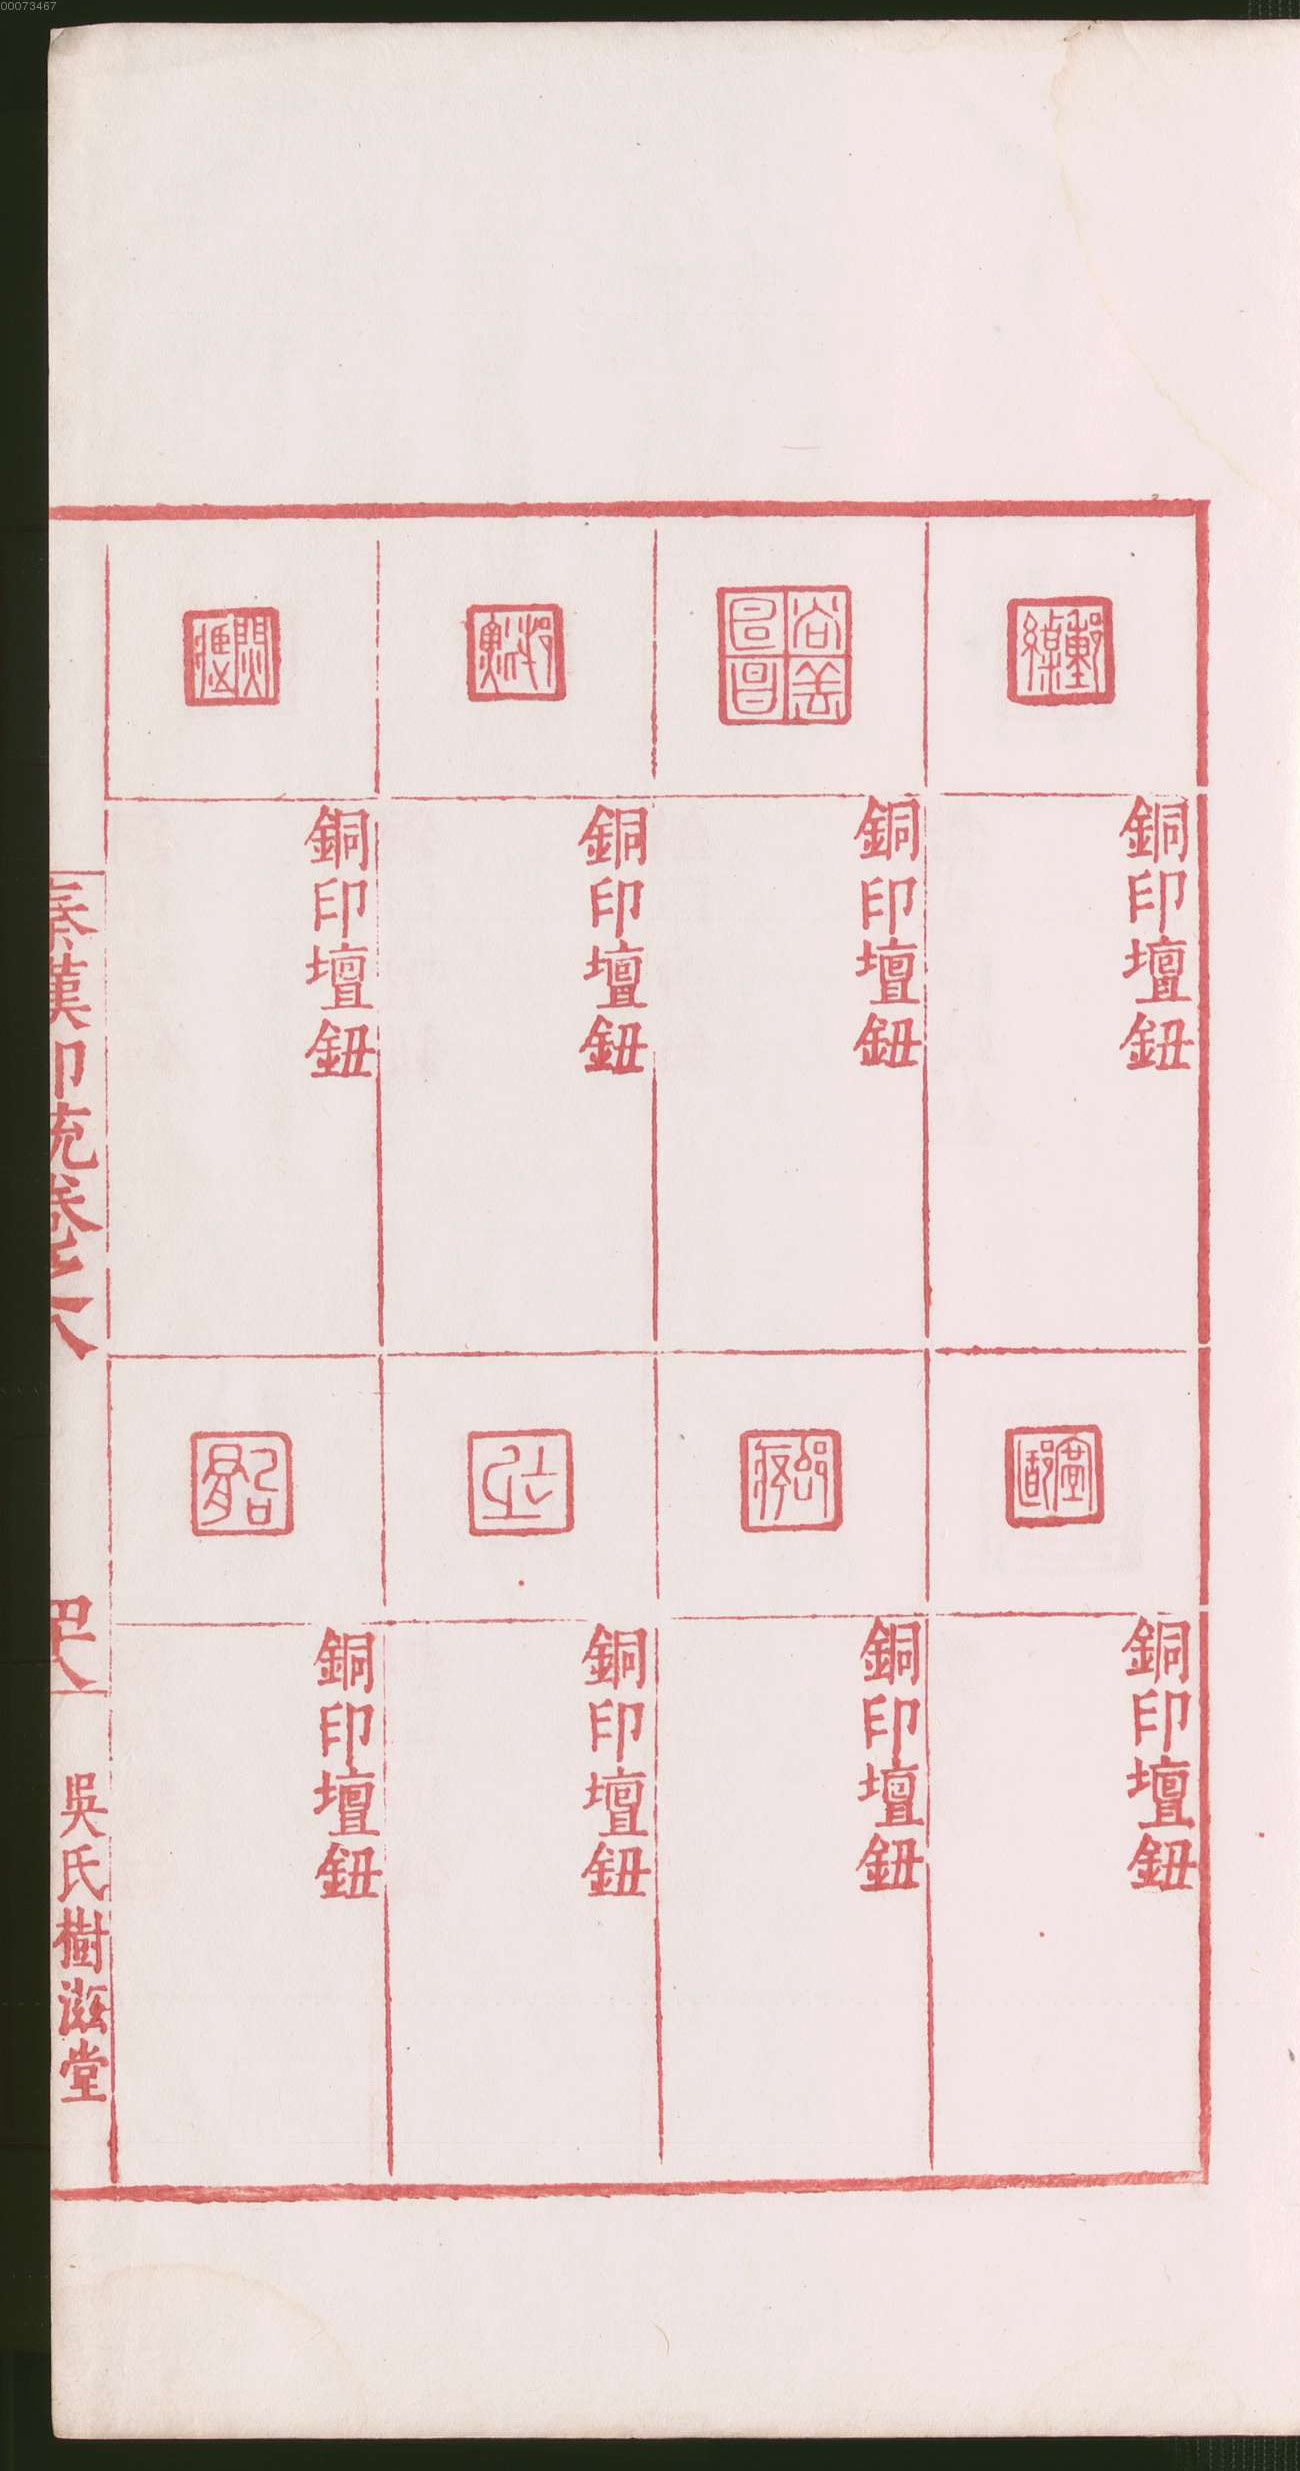 00073467
銅印壇鈕
銅印壇鈕
銅印壇鈕
銅印壇鈕
銅印壇鈕
銅印壇鈕
銅印壇鈕
銅印壇鈕
秦漢印統卷之八
四八
吳氏樹滋堂